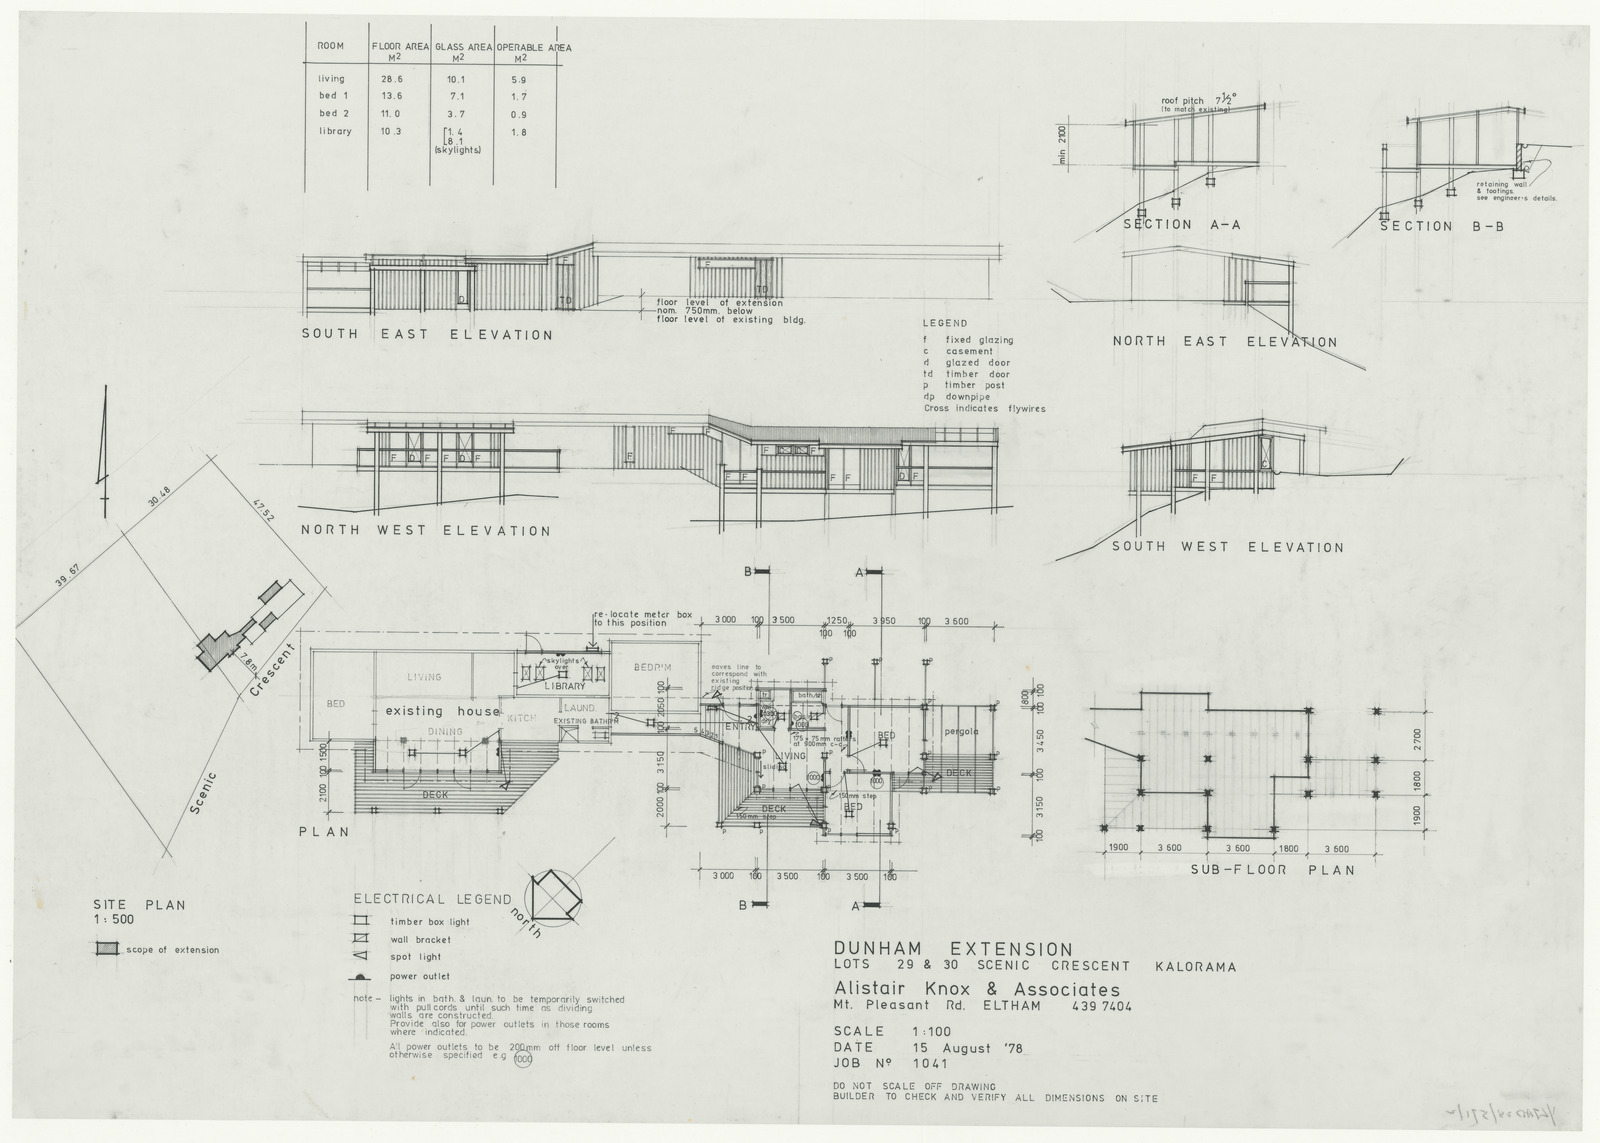 ROOM FLOOR AREA M2 GLASS AREA M2 OPERABLE AREA M2
living 28.6 10.1 5.9
bed 1 13.6 7.1 1.7
bed 2 11.0 3.7 0.9
library 10.3 1.4 1.8
8.1
(skylights)
roof pitch 7½°
(to match existing)
min 2100
SECTION A-A
retaining wall
& footings.
see engineer's details.
SECTION B-B
F
F
D
TD
F
TD
floor level of extension
nom. 750mm. below
floor level of existing bldg.
SOUTH EAST ELEVATION
NORTH EAST ELEVATION
LEGEND
f fixed glazing
c casement
d glazed door
td timber door
p timber post
dp downpipe
Cross indicates flywires
F D F F D F
F
F F
F F
F F
F F
D F
NORTH WEST ELEVATION
C
F F
SOUTH WEST ELEVATION
30.48
47.52
39.67
7.8m
Scenic Crescent
SITE PLAN
1:500
scope of extension
re-locate meter box
to this position
B A
3 000 100 3 500 1250 3 950 100 3 600
100 100
skylights
over
LIBRARY
BEDR'M
LIVING
BED
existing house
KITCH
LAUND.
EXISTING BATHR'M
DINING
DECK
1500
100
2100
PLAN
eaves line to
correspond with
existing
ridge position
bath/sh
ENTRY
175 x 75mm rafters
at 900mm c-c
LIVING
BED
pergola
DECK
150mm step
BED
DECK
150mm step
1000
1000
1000
100
2050
100
3150
100
2000
1800
100
100
3 450
100
3 150
100
3 000 100 3 500 100 3 500 100
B A
2 700
1800
1900
1900 3 600 3 600 1800 3 600
SUB-FLOOR PLAN
ELECTRICAL LEGEND
north
timber box light
wall bracket
spot light
power outlet
note - lights in bath. & laun. to be temporarily switched
with pull cords until such time as dividing
walls are constructed.
Provide also for power outlets in those rooms
where indicated.
All power outlets to be 200mm off floor level unless
otherwise specified e.g 1000
DUNHAM EXTENSION
LOTS 29 & 30 SCENIC CRESCENT KALORAMA
Alistair Knox & Associates
Mt. Pleasant Rd. ELTHAM 439 7404
SCALE 1:100
DATE 15 August '78
JOB Nº 1041
DO NOT SCALE OFF DRAWING
BUILDER TO CHECK AND VERIFY ALL DIMENSIONS ON SITE